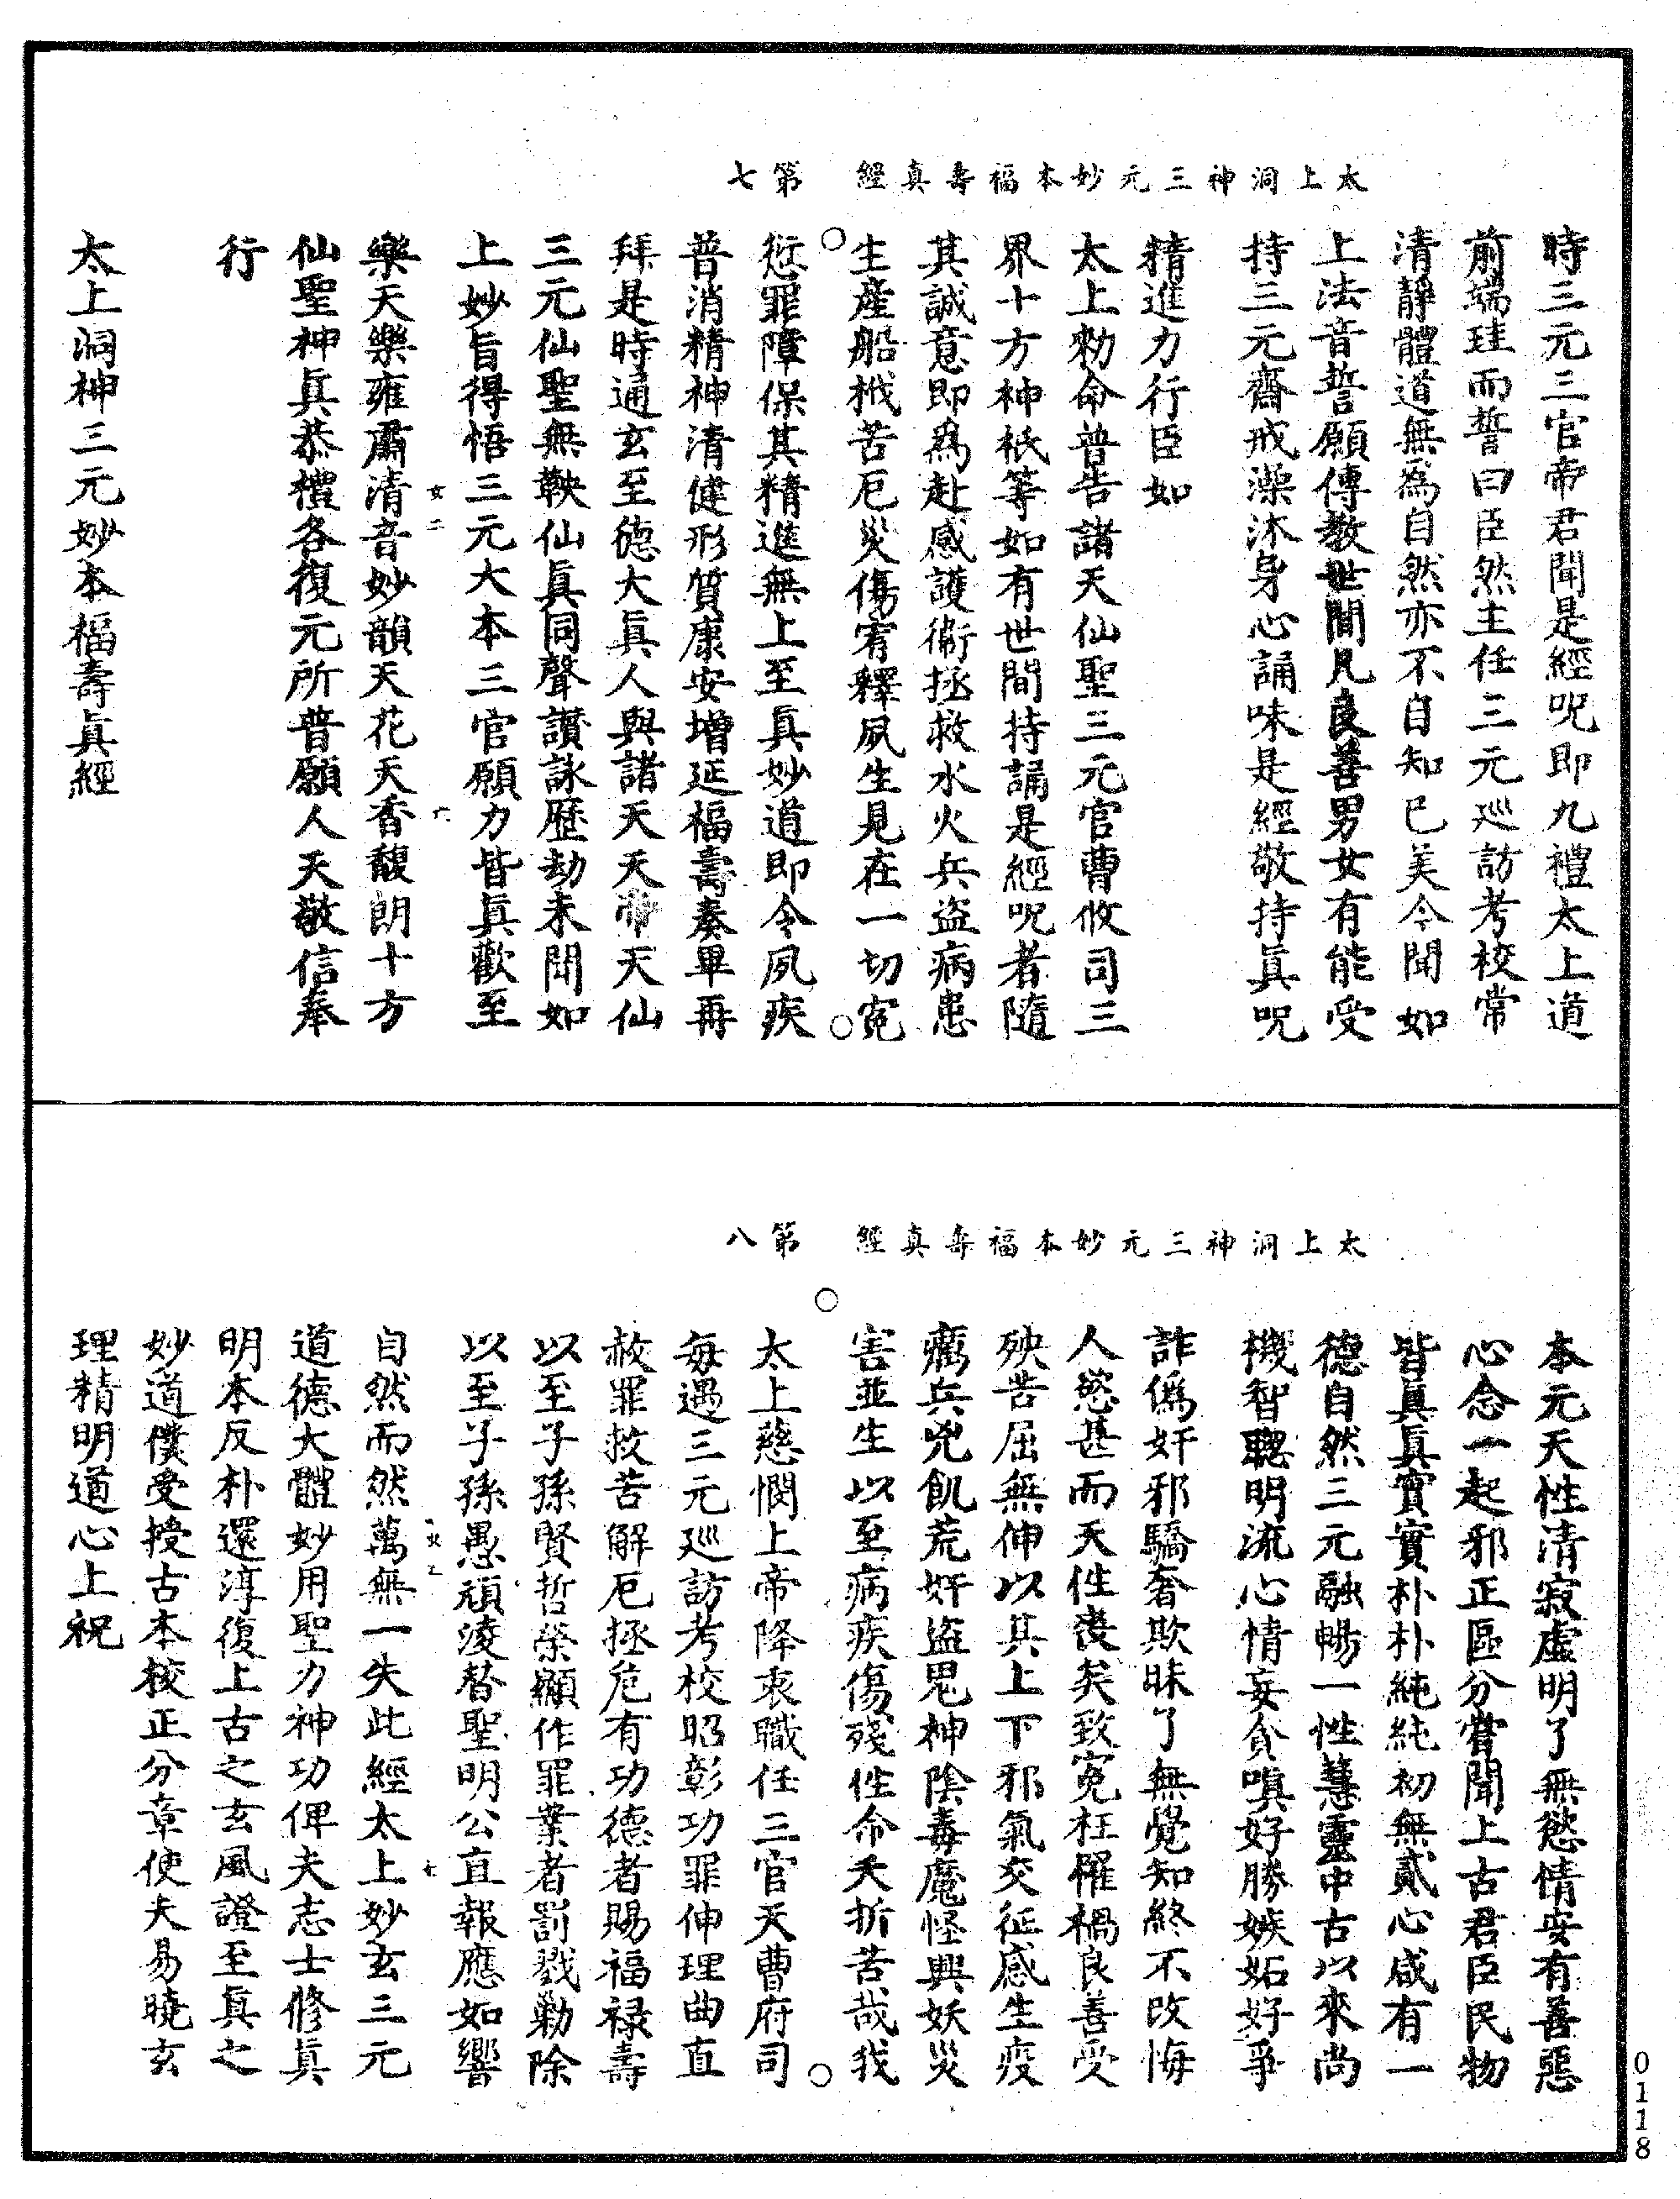 太上洞神三元妙本福壽真經　第七
時三元三官帝君聞是經呪即九禮太上道
前端珪而誓曰臣然主任三元巡訪考校常
清靜體道無為自然亦不自知已美今聞如
上法音誓願傳教世間凡良善男女有能受
持三元齋戒澡沐身心誦味是經敬持眞呪
精進力行臣如
太上勑命普告諸天仙聖三元官曹攸司三
界十方神祇等如有世間持誦是經呪者隨
其誠意即為赴感護衛拯救水火兵盜病患
生產船栰苦厄災傷宥釋夙生見在一切寃
愆罪障保其精進無上至眞妙道即令夙疾
普消精神清健形質康安增延福壽奏畢再
拜是時通玄至德大眞人與諸天天帝天仙
三元仙聖無鞅仙眞同聲讚詠歷劫未聞如
上妙旨得悟三元大本三官願力皆眞歡至
樂天樂雍肅清音妙韻天花天香馥朗十方
仙聖神眞恭禮各復元所普願人天敬信奉
行
太上洞神三元妙本福壽眞經
女二
六
太上洞神三元妙本福壽真經　第八
本元天性清寂虛明了無慾情安有善惡
心念一起邪正區分嘗聞上古君臣民物
皆眞眞實實朴朴純純初無貳心咸有一
德自然三元融暢一性慧靈中古以來尚
機智聰明流心情妄貪嗔好勝嫉妬好爭
詐僞奸邪驕奢欺昧了無覺知終不改悔
人慾甚而天性喪矣致寃枉罹禍良善受
殃苦屈無伸以其上下邪氣交征感生疫
癘兵兇飢荒奸盜鬼神陰毒魔怪興妖災
害並生以至病疾傷殘性命夭折苦哉我
太上慈憫上帝降衷職任三官天曹府司
每遇三元巡訪考校昭彰功罪伸理曲直
赦罪救苦解厄拯危有功德者賜福祿壽
以至子孫賢哲榮顯作罪業者罰戮勦除
以至子孫愚頑淩替聖明公直報應如響
自然而然萬無一失此經太上妙玄三元
道德大體妙用聖力神功俾夫志士修眞
明本反朴還淳復上古之玄風證至眞之
妙道僕受授古本校正分章使夫易曉玄
理精明道心上祝
七
0118